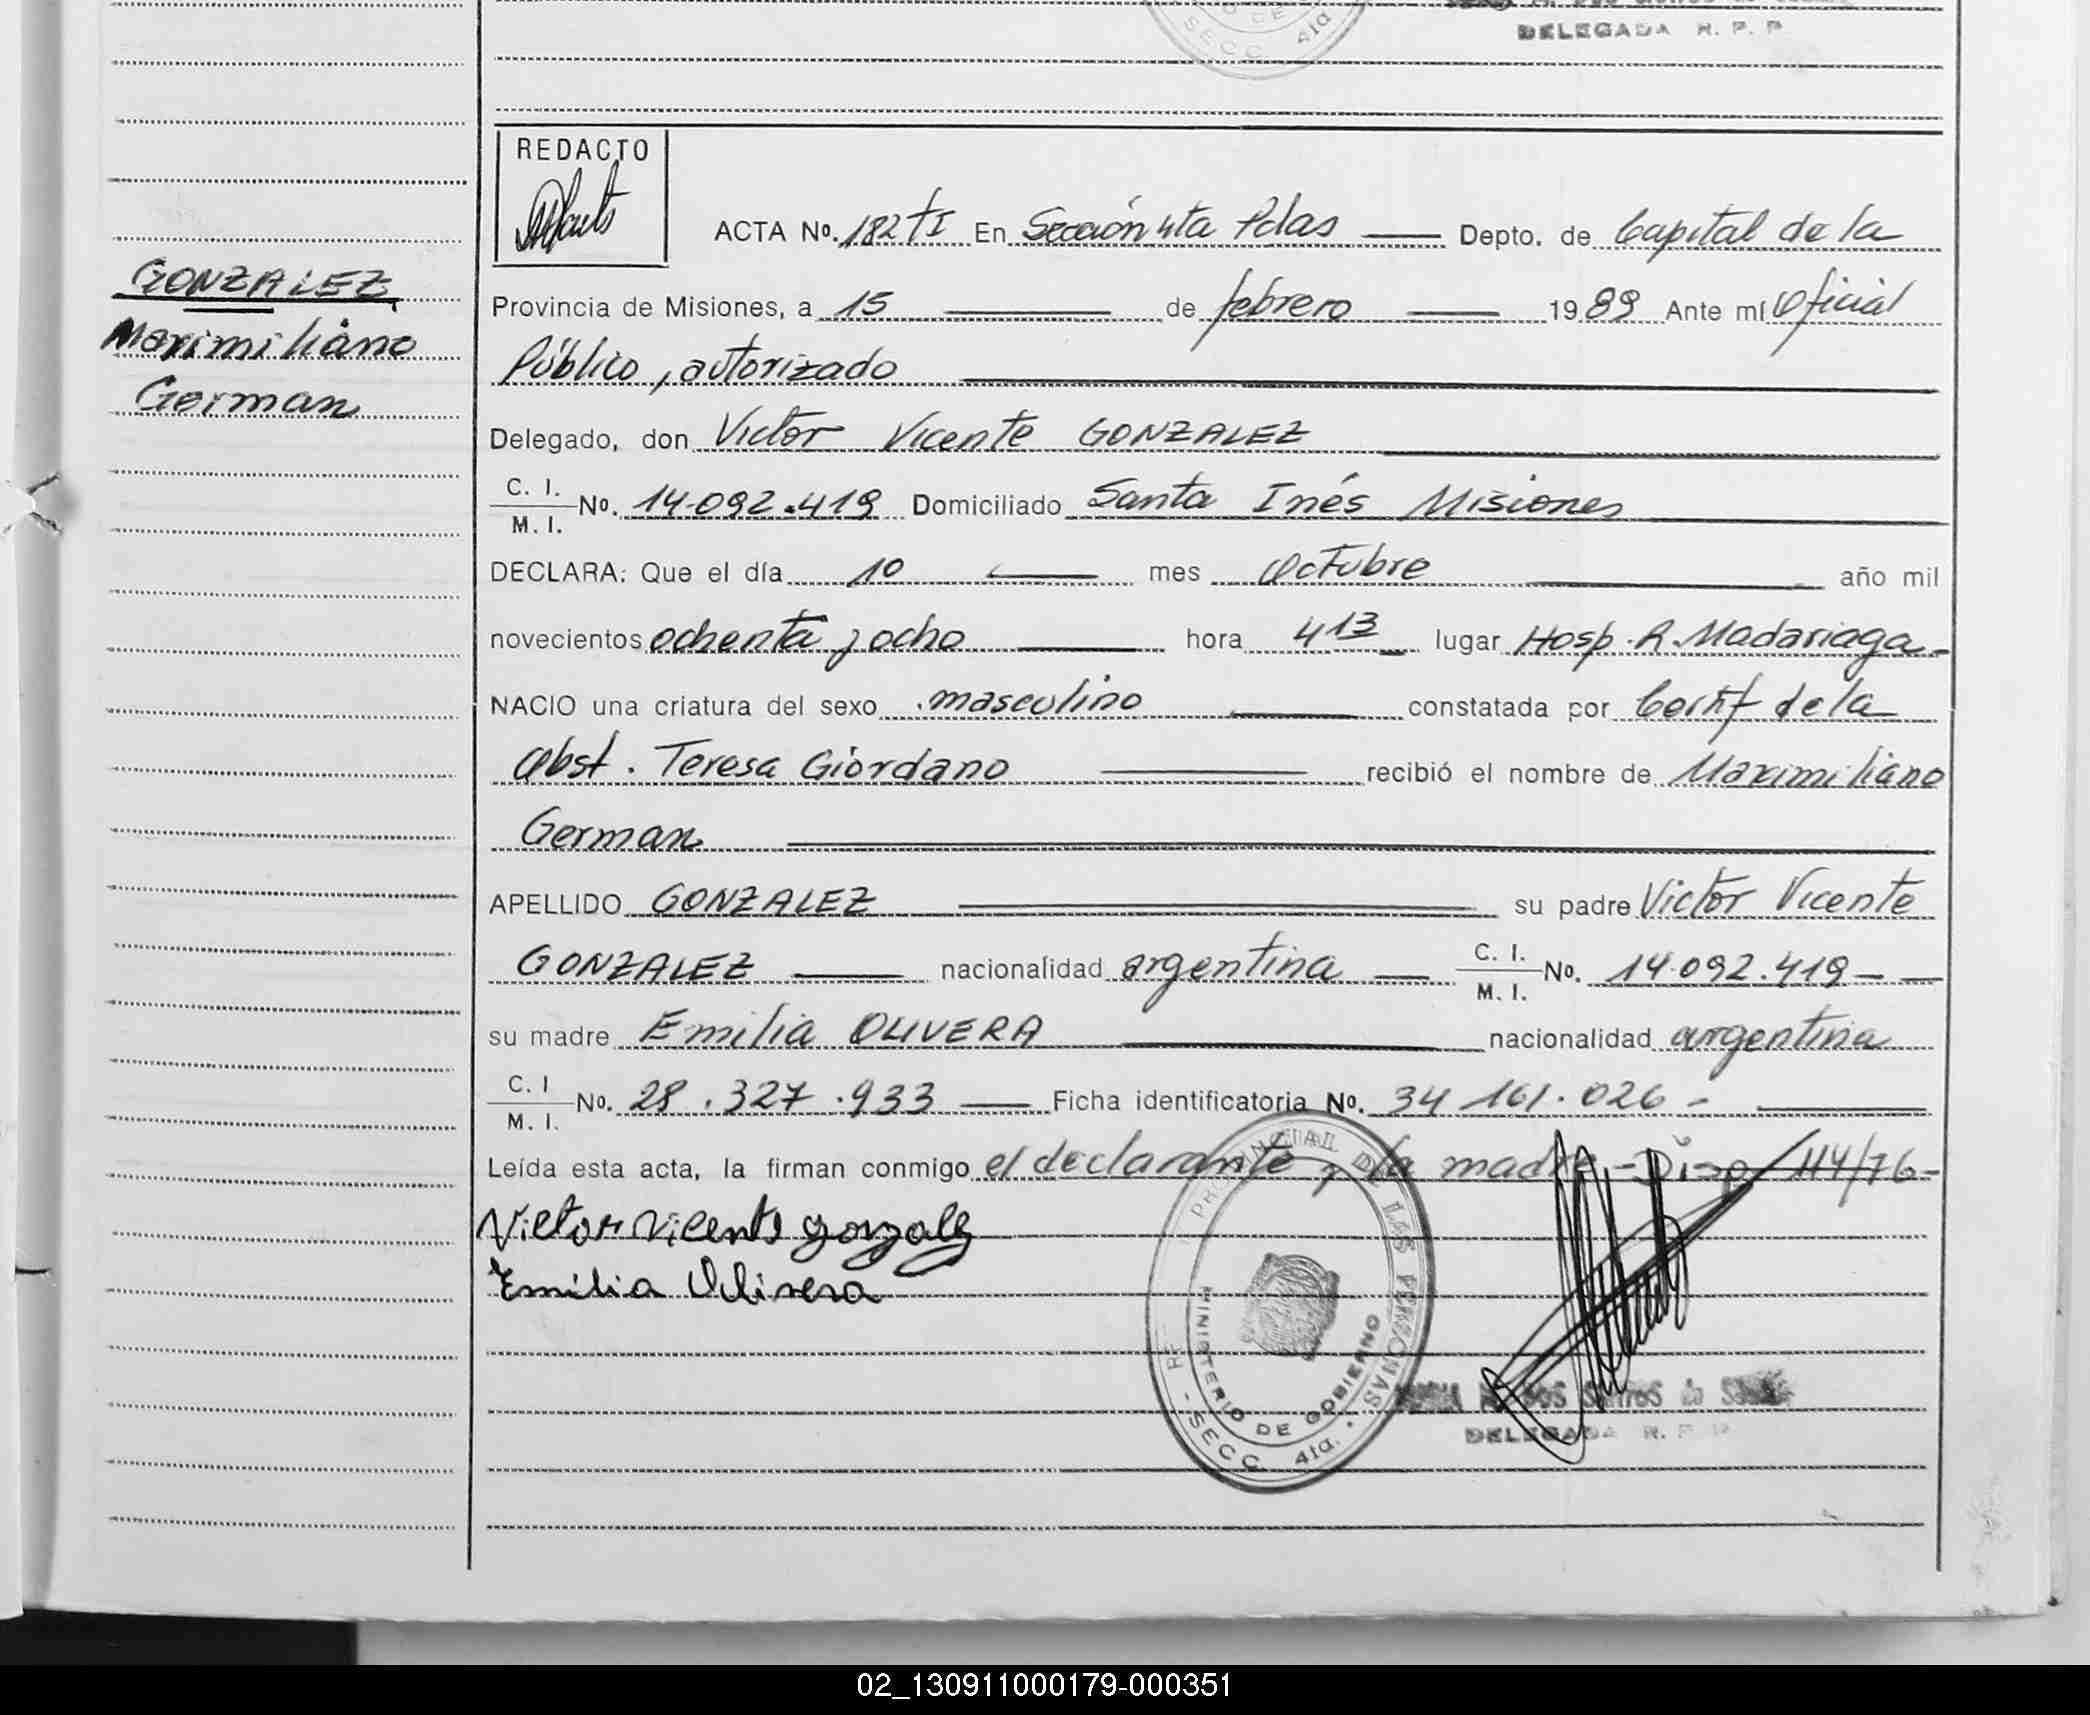 DELEGADA R. P. P
SECC 4ta
DE
REDACTO
ACTA Nº. 182 tI En Sección 4ta Pdas Depto. de Capital de la
GONZALEZ
Maximiliano
German
Provincia de Misiones, a 15 de febrero 1989 Ante mí Oficial
Público, autorizado
Delegado, don Victor Vicente GONZALEZ
C. I. / M. I. Nº. 14.092.419 Domiciliado Santa Inés Misiones
DECLARA: Que el día 10 mes Octubre año mil
novecientos ochenta y ocho hora 4 13 lugar Hosp. R. Madariaga-
NACIO una criatura del sexo masculino constatada por Certif de la
Obst. Teresa Giordano recibió el nombre de Maximiliano
German
APELLIDO GONZALEZ su padre Victor Vicente
GONZALEZ nacionalidad argentina C. I. / M. I. Nº. 14.092.419-
su madre Emilia OLIVERA nacionalidad argentina
C. I / M. I. Nº. 28.327.933 Ficha identificatoria Nº. 34 161.026-
Leída esta acta, la firman conmigo el declarante y la madre - Disp 114/76-
Victor Vicente Gonzalez
Emilia Olivera
PROVINCIAL DE LAS PERSONAS. SECC 4ta.
MINISTERIO DE GOBIERNO
DOS SANTOS de
DELEGADA R. P. P
02_130911000179-000351